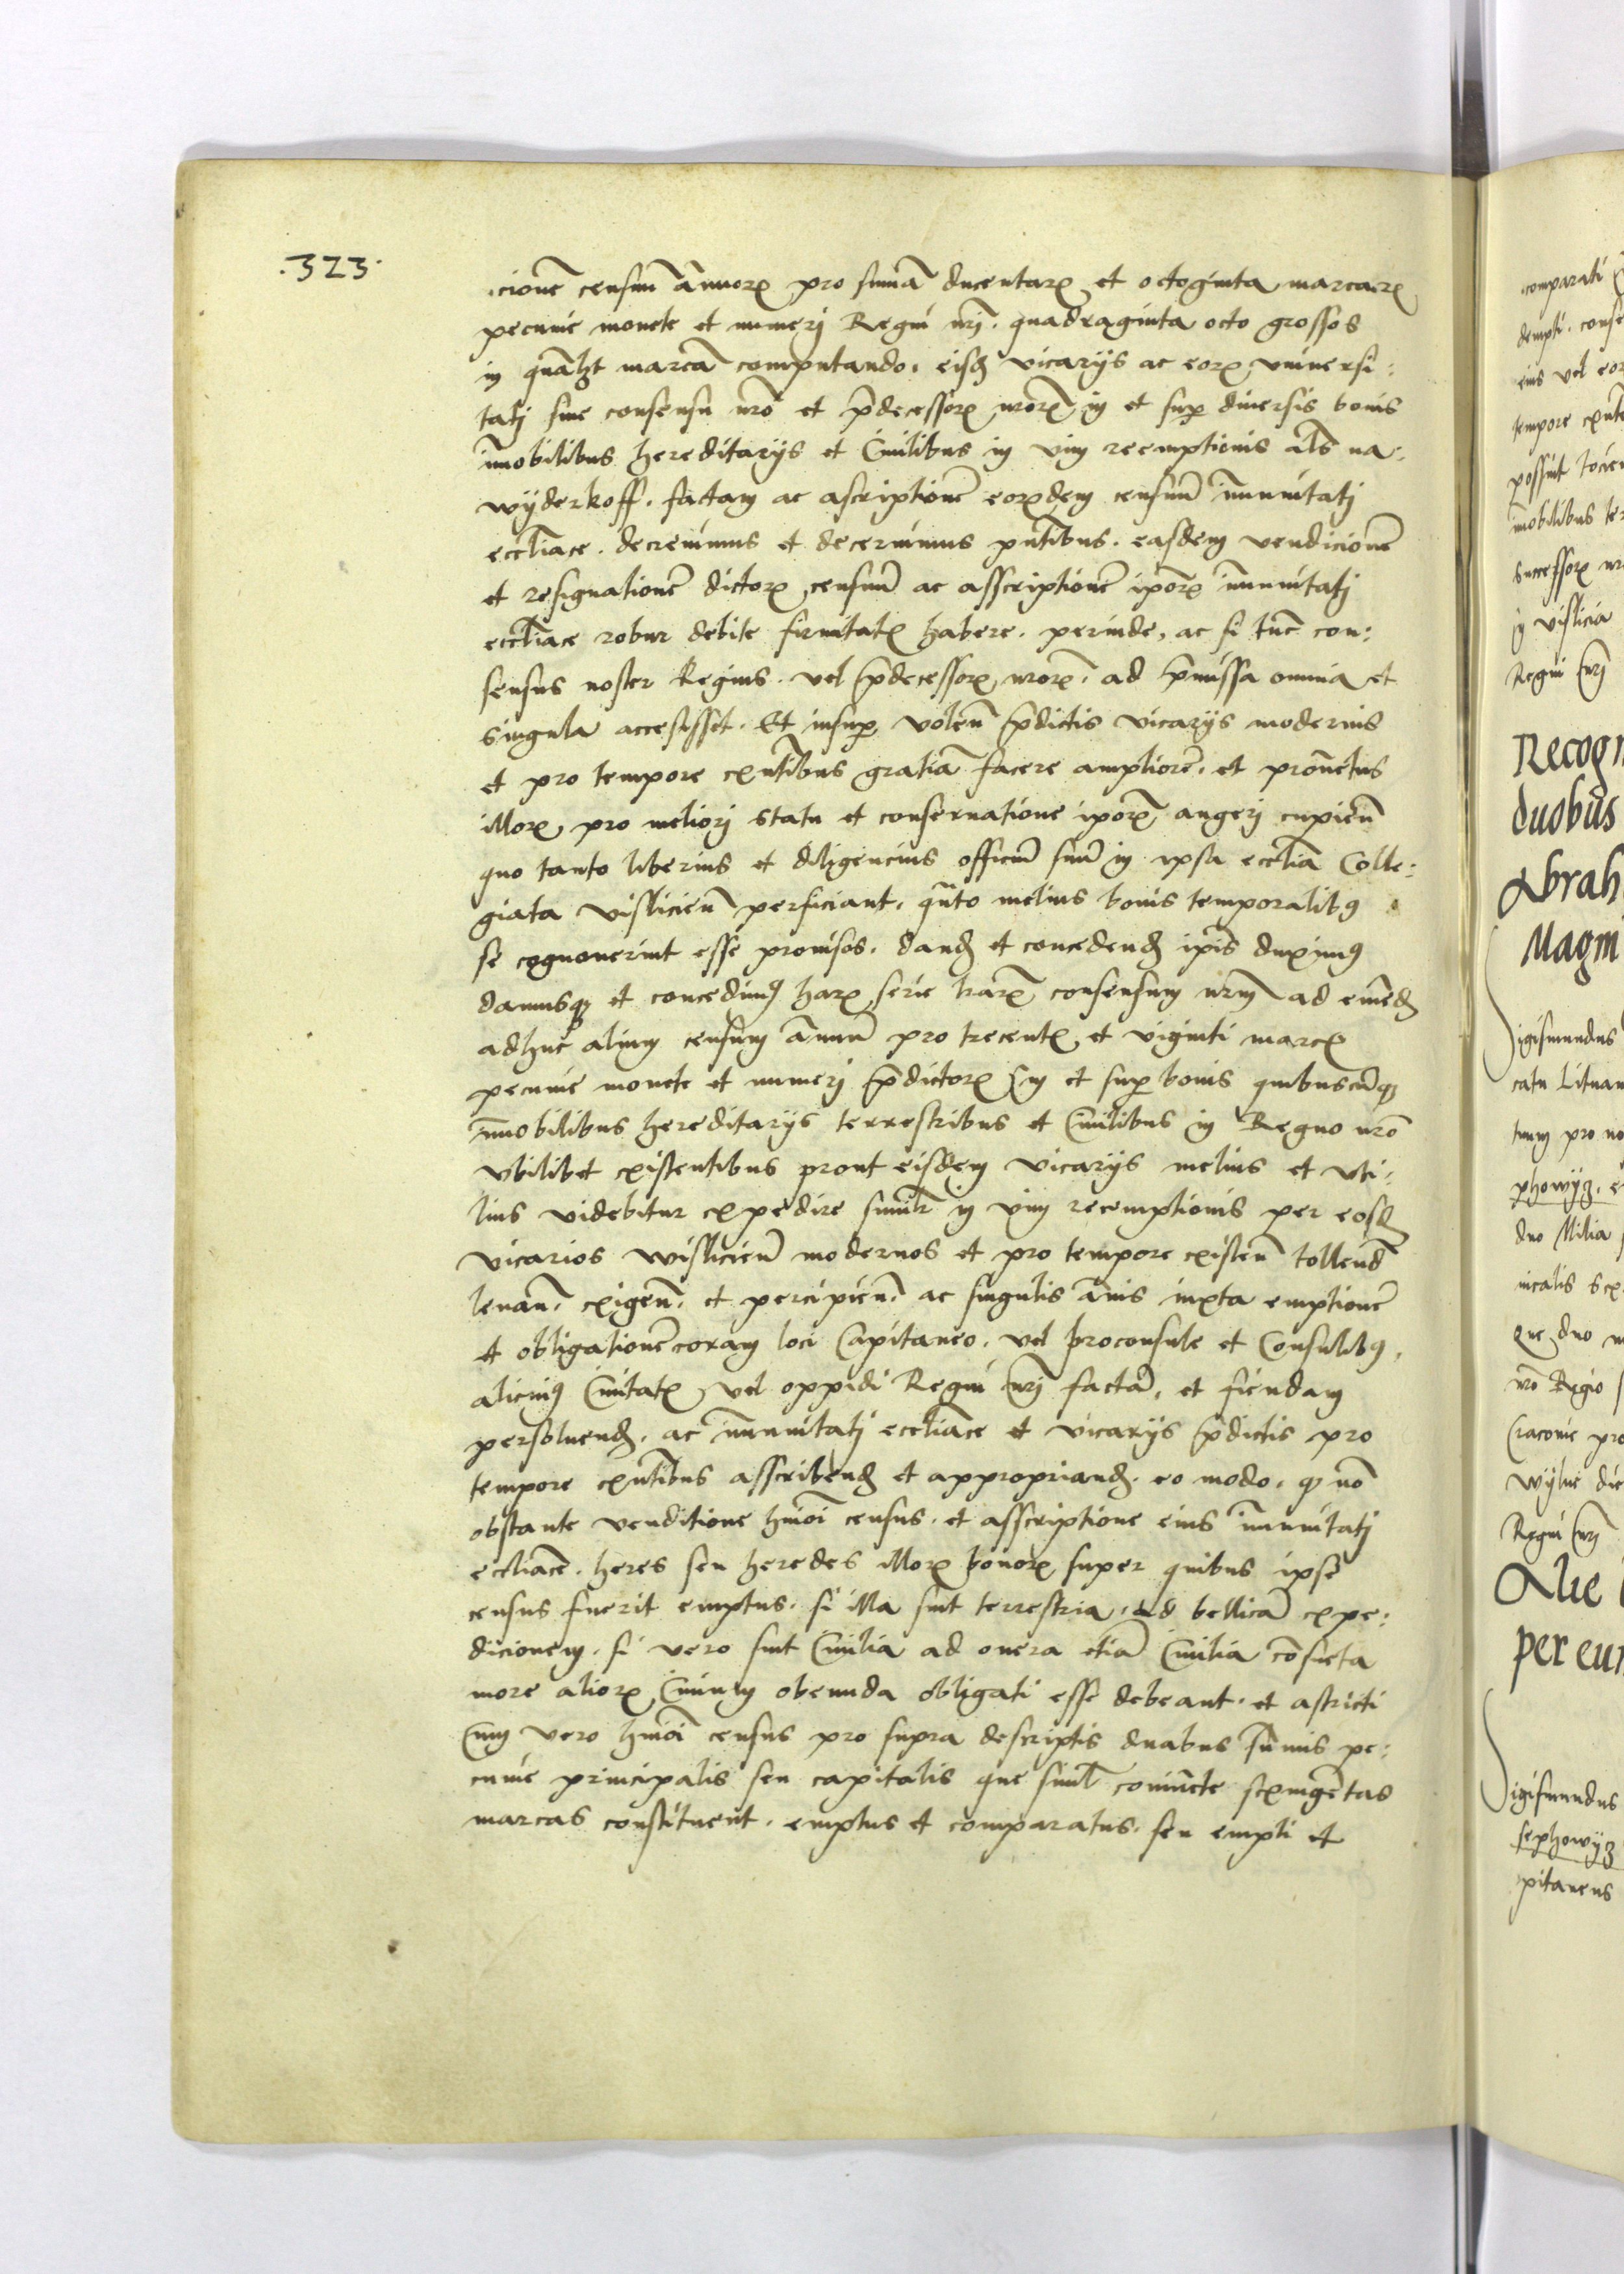 .323.
cionē censuū ānuoꝝ pro sumā ducentaꝝ et octoginta marcarꝝ
pecunie monete et numerj Regni nrj̄. quadraginta octo grossos
in quālꝫt marcā computando. eisꝺ vicarijs ac eoꝝ vniuersi:
tatj sine consensu nr̄o et p̄decessoꝝ nr̄oꝝ in et suꝑ diuersis bonis
īmobilibus hereditarijs et Ciuilibus in vim reemptionis als̄ na:
wÿderkoff. factam ac ascriptionē eorꝝdem censuū īmunitatj
ecclīace. decreuimus et decernimus pn̄tibus. easdem vendicionē
et resignationē dictoꝝ censuū ac asscriptionē ip̄oꝝ īmunitatj
ecclīace robur debite firmitatꝭ habere. perinde, ac si tūc con:
sensus noster Regius. vel p̄decessoꝝ nr̄oꝝ. ad p̄missa omnia et
singula accessisset. Et insuꝑ volen̄ p̄dictis vicarijs modernis
et pro tempore exn̄tibus gratiā facere ampliorē. et prouētus
illoꝝ pro meliorj statu et conseruatione ip̄oꝝ augerj cupien̄
quo tanto liberius et diligencius officiū suū in ipsa ecclīa Colle:
giata vislicien̄ perficiant. qn̄to melius bonis temporalibꝯ
se cognouerint esse prouisos. danꝺ et concedenꝺ ip̄is duximꝯ
damusqꝫ et concedimꝯ harꝝ serie lr̄arꝝ consensum nr̄m ad emēꝺ
adhuc alium censum ānuū pro trecentꝭ et viginti marcꝭ
pecunie monete et numerj p̄dictoꝝ in et suꝑ bonis quibuscūqꝫ
īmobilibus hereditarijs terrestribus et Ciuilibus in Regno nr̄o
vbilibet existentibus prout eisdem vicarijs melius et vti:
lius videbitur expedire similr̄ in vim reemptionis per eosꝺ
vicarios wislicien̄ modernos et pro tempore existen̄ tollend̄
leuan̄. exigen̄. et percipien̄. ac singulis ānis iuxta emptionē
et obligationē coram loci Capitaneo. vel proconsule et Consulibꝯ.
alicuiꝯ Ciuitatꝭ vel oppidi Regni nrj̄ factā. et fiendam
persoluenꝺ. ac īmunitatj ecclīace et vicarijs p̄dictis pro
tempore exn̄tibus asscribenꝺ et approprianꝺ. eo modo. qꝫ nō
obstante venditione hmōi census. et asscriptione eius īmunitatj
ecclīace. heres seu heredes illoꝝ bonoꝝ super quibus ipse
census fuerit emptus. si illa sint terrestria, ad bellicā expe:
dicionem. si vero sint Ciuilia ad onera etiā Ciuilia cōsueta
more alioꝝ Ciuium obeunda obligati esse debeant. et astricti
Cum vero hmōi census pro supra descriptis duabus sūmis pe:
cunie principalis seu capitalis que siml̄ coniūcte sexingētas
marcas constituent. emptus et comparatus. seu empti et
comparati
dempti. conse
eius vel eor
tempore exn̄te
possint tocien
īmobilibus ter
successoꝝ nr
in vislicia
Regni nrj̄
Recogn
duobus
Abrah
Magni
Sigismundus
catu Lituan
tuum pro no
phowÿꝫ. e
duo Milia
nicalis sex
que duo m
nr̄o Regio
Cracouie pro
wÿlne die
Regni nrj̄
Alie
per eun
Sigismundus
sephowÿꝫ
pitaneus